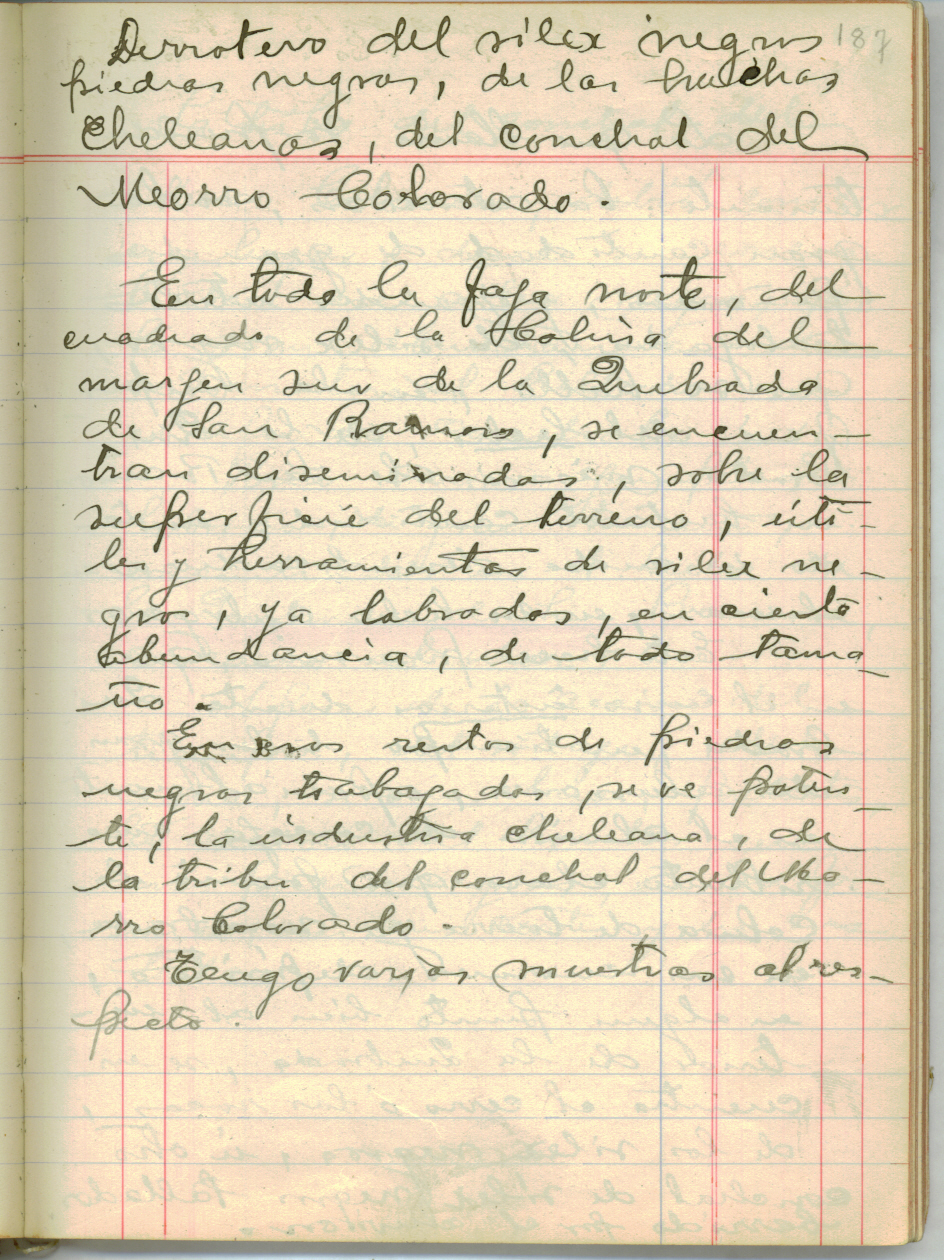 187
Derrotero del silex negros
piedras negras, de las hachas
Cheleanas, del conchal del
Meorro Colorado.
En toda la faja norte, del
cuadrado de la Colina del
margen sur de la Quebrada
de San Ramon, se encuen-
tran diseminadas, sobre la
superficie del terreno, úti-
les y herramientas de silex ne-
gros, ya labrados, en cierta
abundancia, de todo tama-
ño.
En esos restos de piedras
negras trabajadas, se ve paten-
te, la industria cheleana, de
la tribu del conchal del Mo-
rro Colorado.
Tengo varias muestras al res-
pecto.